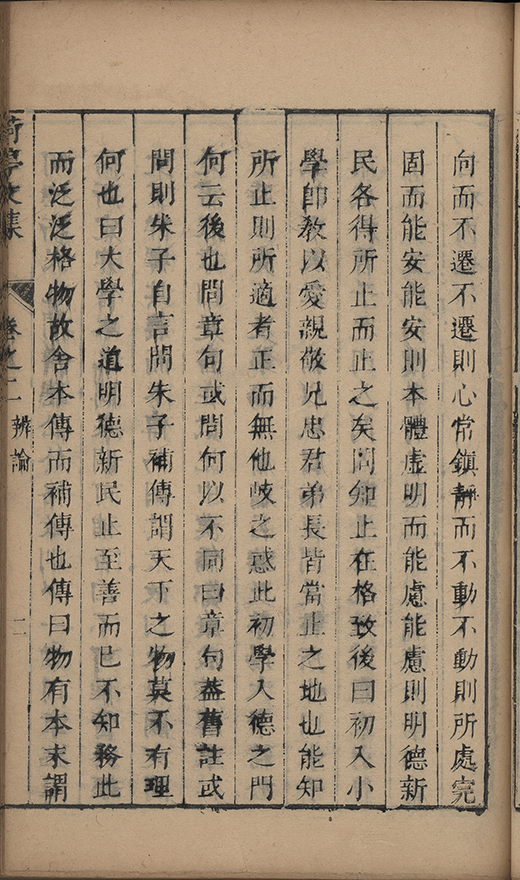 向而不遷不遷則心常鎮靜而不動不動則所處完
固而能安能安則本體虛明而能慮能慮則明德新
民各得所止而止之矣問知止在格致後曰初入小
學即教以愛親敬兄忠君弟長皆當止之地也能知
所止則所適者正而無他歧之惑此初學入德之門
何云後也問章句或問何以不同曰章句蓋舊註或
問則朱子自言問朱子補傳謂天下之物莫不有理
何也曰大學之道明德新民止至善而已不知務此
而泛泛格物故舍本傳而補傳也傳曰物有本末謂
文集 卷之二 辨論 二